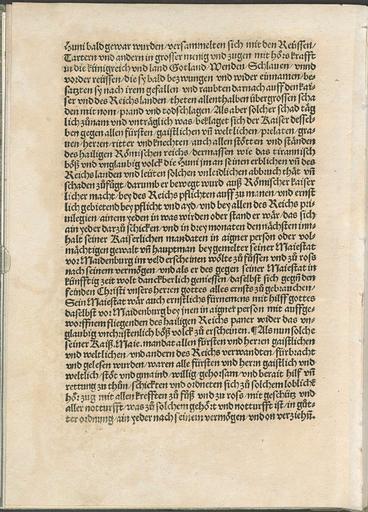 Huni bald gewar wurden / versammelten sich mit den Reüssen /
Tartern vnd andern in grosser menig vnd zugen mit hörs krafft
in die künigreich vnd land Gotland / Wenden / Schlauen / vnnd
vorder reüssen / die sy bald bezwungen vnd wider einnamen / be-
satzten sy nach irem gefallen / vnd raubten darnach auff den kai-
ser vnd des Reichs landen / theten allenthalben übergrossen scha
den mit nom / prand vnd todschlagen / Als aber solcher schad täg
lich zunam vnd vnträglich was / beklaget sich der Kaiser dessel-
ben gegen allen fürsten / gaistlichen vn̄ weltlichen / prelaten / gra-
uen / herzen / ritter vnd knechten / auch allen stötten vnd ständen
des hailigen Römischen reichs / dermassen wie das tirannisch
böß vnd vnglaubig volck die Huni jm an seinen erblichen vn̄ des
Reichs landen vnd leütten solchen vnleidlichen abbruch thät vn̄
schaden zufügt / darumb er bewegt wurd auß Römischer kaiser
licher macht / bey des Reichs pflichten auff zu manen / vnd ernst
lich gebietend bey pflicht vnd ayd / vnd bey allen des Reichs pri
uilegien / ainem yeden in was wirden oder stand er wär / das sich
ain yeder darzu schicken / vnd in drey monaten den nächsten inn-
halt seiner Kaiserlichen mandaten in aigner person oder vol-
mächtigen gewalt vn̄ hauptman / bey gemelter seiner Maiestat
vor Maidenburg im veld erscheinen wölte zu füssen vnd zu roß
nach seinem vermögen / vnd als er des gegen seiner Maiestat in
künfftig zeit wolt danckberlich geniessen / daselbst sich gegn̄ den
feinden Christi vnsers herren gottes alles ernsts zu gebrauchen /
Sein Maiestat wär auch ernstlichs fürnemens mit hilff gottes
daselbst vor Maidenburg bey jnen in aigner person mit auffge-
worffnem fliegenden des hailigen Reichs paner wider das vn-
glaubig vnchristenlich böß volck zu erscheinen. ¶ Als nun solche
seiner Kaiß. Maie. mandat allen fürsten vnd herren gaistlichen
vnd weltlichen / vnd andern des Reichs verwandten / fürbracht
vnd gelesen wurden / waren alle fürsten vnd herrn gaistlich vnd
weltlich / stöt vnd gmaind / willig / gehorsam / vnd berait hilf vn̄
rettung zu thun / schickten vnd ordneten sich zu solchem loblichē
hörzug / mit allen krefften zu fuß vnd zu ross / mit geschütz vnd
aller notturfft / was zu solchem gehört vnd notturfft ist / in gut-
ter ordnung / ain yeder nach seinem vermögen / vnd on verziehn̄.